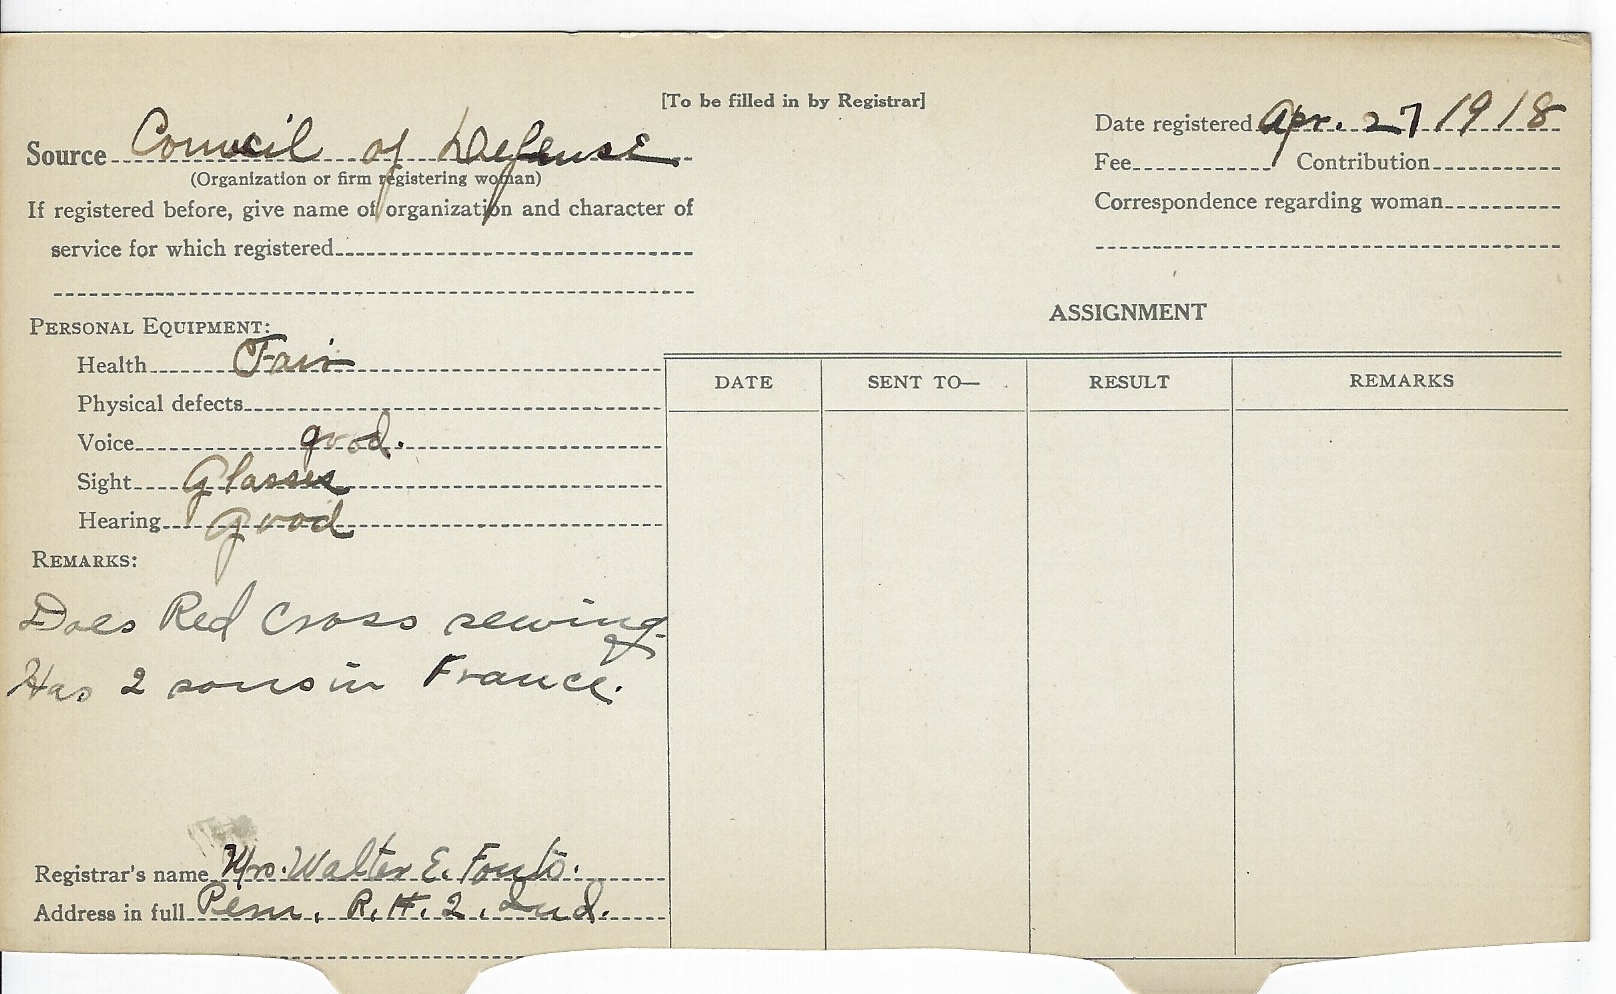 [To be filled in by Registrar]
Source Council of Defense
(Organization or firm registering woman)
If registered before, give name of organization and character of
service for which registered
Date registered Apr. 27 1918
Fee Contribution
Correspondence regarding woman
PERSONAL EQUIPMENT:
Health Fair
Physical defects
Voice good.
Sight Glasses
Hearing good
REMARKS:
Does Red Cross sewing
Has 2 sons in France.
Registrar's name Mrs. Walter E. Fouts.
Address in full R. #. 2. Ind.
ASSIGNMENT
DATE SENT TO— RESULT REMARKS